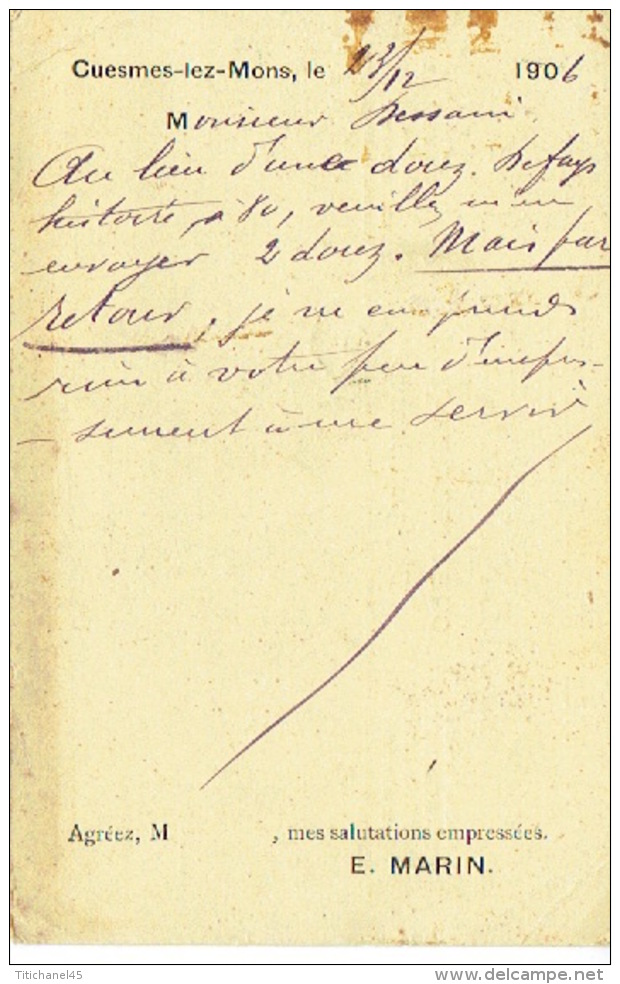 Cuesmes-lez-Mons, le 23/12 1906
Monsieur Dessain
Au lieu d'une douz. Defays
histoire, à 80, veuillez m'en
envoyer 2 douz. Mais par
retour, je ne comprends
rien à votre peu d'empres-
- sement à me servir
Agréez, M , mes salutations empressées.
E. MARIN.
Titichanel45
www.delcampe.net